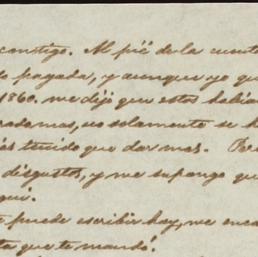 contigo. Al pié de la cuenta
pagada, y aunque yo que
1860. me dijo que estos habian
mas, no solamente se h
tenido que dar mas. Per
disgustos, y me supongo qu
qui.
puede escribir hoy, me enca
ta que te mandó.